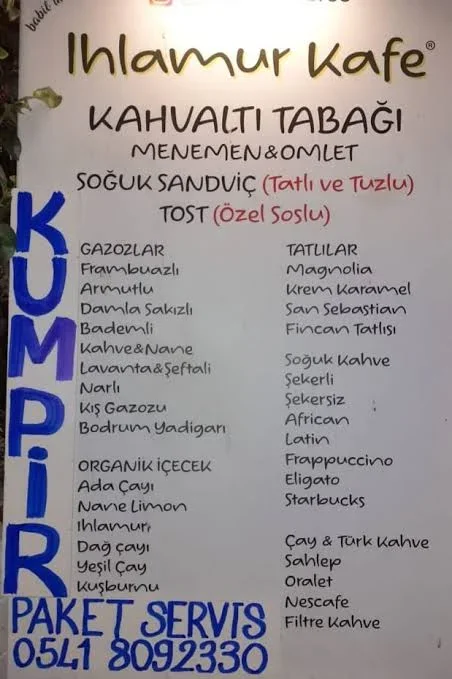 babil
Ihlamur Kafe®
KAHVALTI TABAĞI
MENEMEN&OMLET
SOĞUK SANDVİÇ (Tatlı ve Tuzlu)
TOST (Özel Soslu)
KUMPİR
GAZOZLAR
Frambuazlı
Armutlu
Damla Sakızlı
Bademli
Kahve&Nane
Lavanta&Şeftali
Narlı
Kış Gazozu
Bodrum Yadigarı
ORGANİK İÇECEK
Ada Çayı
Nane Limon
Ihlamur
Dağ çayı
Yeşil Çay
Kuşburnu
TATLILAR
Magnolia
Krem Karamel
San Sebastian
Fincan Tatlısı
Soğuk Kahve
Şekerli
Şekersiz
African
Latin
Frappuccino
Eligato
Starbucks
Çay & Türk Kahve
Sahlep
Oralet
Nescafe
Filtre Kahve
PAKET SERVİS
0541 8092330